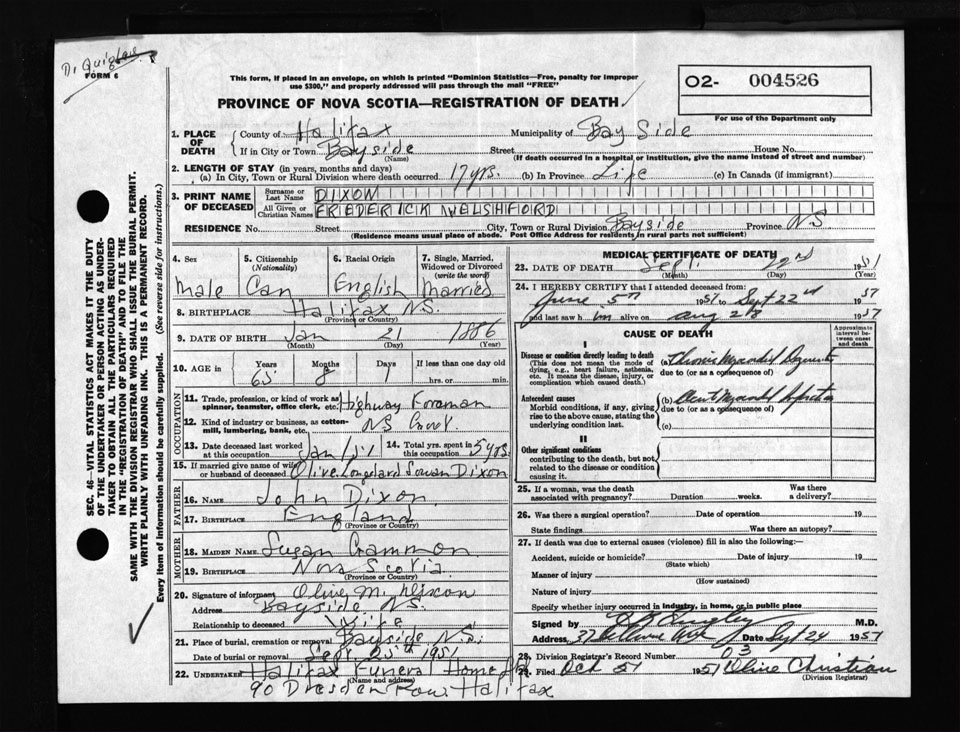 D. Quigley
FORM 6
This form, if placed in an envelope, on which is printed "Dominion Statistics—Free, penalty for improper
use $300," and properly addressed will pass through the mail "FREE"
PROVINCE OF NOVA SCOTIA—REGISTRATION OF DEATH
02- 004526
For use of the Department only
1. PLACE OF DEATH
County of Halifax Municipality of Bay Side
If in City or Town Bayside Street House No.
(Name) (If death occurred in a hospital or institution, give the name instead of street and number)
2. LENGTH OF STAY (in years, months and days)
(a) In City, Town or Rural Division where death occurred 17 yrs. (b) In Province Life (c) In Canada (if immigrant)
3. PRINT NAME OF DECEASED
Surname or Last Name DIXON
All Given or Christian Names FREDERICK WELSHFORD
RESIDENCE No. Street City, Town or Rural Division Bayside Province NS
(Residence means usual place of abode. Post Office Address for residents in rural parts not sufficient)
4. Sex
Male
5. Citizenship (Nationality)
Can
6. Racial Origin
English
7. Single, Married, Widowed or Divorced (write the word)
Married
8. BIRTHPLACE Halifax N.S.
(Province or Country)
9. DATE OF BIRTH Jan 21 1886
(Month) (Day) (Year)
10. AGE in Years Months Days If less than one day old
65 8 1 hrs. or min.
OCCUPATION
11. Trade, profession, or kind of work as spinner, teamster, office clerk, etc. Highway Foreman
12. Kind of industry or business, as cotton-mill, lumbering, bank, etc. NS Govt
13. Date deceased last worked at this occupation Jan 1/51
14. Total yrs. spent in this occupation 5 yrs
15. If married give name of wife or husband of deceased Olive Dixon
FATHER
16. NAME John Dixon
17. BIRTHPLACE England
(Province or Country)
MOTHER
18. MAIDEN NAME Susan Gammon
19. BIRTHPLACE Nova Scotia
(Province or Country)
20. Signature of informant Olive M. Dixon
Address Bayside N.S.
Relationship to deceased Wife
21. Place of burial, cremation or removal Bayside N.S.
Date of burial or removal Sept 25th 1951
22. UNDERTAKER Halifax Funeral Home Ltd
(Name and address)
90 Dresden Row Halifax
MEDICAL CERTIFICATE OF DEATH
23. DATE OF DEATH Sept. 22nd 1951
(Month) (Day)
24. I HEREBY CERTIFY that I attended deceased from:
June 5th 1951 to Sept 22nd 1951
and last saw him alive on Aug 28 1951
CAUSE OF DEATH
Approximate interval between onset and death
I
Disease or condition directly leading to death
(This does not mean the mode of dying, e.g., heart failure, asthenia, etc. It means the disease, injury, or complication which caused death.)
(a) Chronic Myocardial
due to (or as a consequence of)
Antecedent causes
Morbid conditions, if any, giving rise to the above cause, stating the underlying condition last.
(b) Acute Myocardial Infarction
due to (or as a consequence of)
(c)
II
Other significant conditions
contributing to the death, but not related to the disease or condition causing it.
25. If a woman, was the death associated with pregnancy? Duration weeks. Was there a delivery?
26. Was there a surgical operation? Date of operation 19
State findings Was there an autopsy?
27. If death was due to external causes (violence) fill in also the following:—
Accident, suicide or homicide? Date of injury 19
(State which)
Manner of injury
(How sustained)
Nature of injury
Specify whether injury occurred in industry, in home, or in public place
Signed by Quigley M.D.
Address 37 Ave Date Sept 24 1951
28. Division Registrar's Record Number 03
29. Filed Oct 5 1951 Olive Christian
(Division Registrar)
SEC. 46—VITAL STATISTICS ACT MAKES IT THE DUTY
OF THE UNDERTAKER OR PERSON ACTING AS UNDER-
TAKER TO OBTAIN ALL THE PARTICULARS REQUIRED
IN THE "REGISTRATION OF DEATH" AND TO FILE THE
SAME WITH THE DIVISION REGISTRAR WHO SHALL ISSUE THE BURIAL PERMIT.
WRITE PLAINLY WITH UNFADING INK. THIS IS A PERMANENT RECORD.
Every item of information should be carefully supplied. (See reverse side for instructions.)